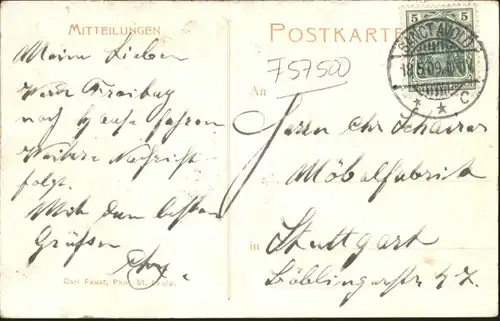 MITTEILUNGEN
Meine Lieben
Werde Freitag
nach Hause fahren
Weitere Nachricht
folgt.
Mit den besten
Grüßen
Carl Faust, Phot. St. Avold.
POSTKARTE
5 5
SANCT AVOLD
18.6.09
* * C
757500
An
Herrn Chr Schairer
Möbelfabrik
in Stuttgart
Böblingerstr